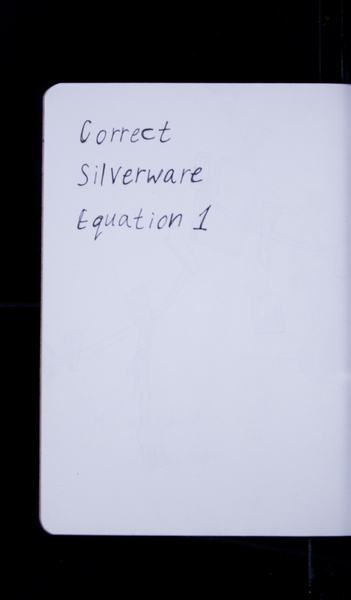 Correct
Silverware
Equation 1